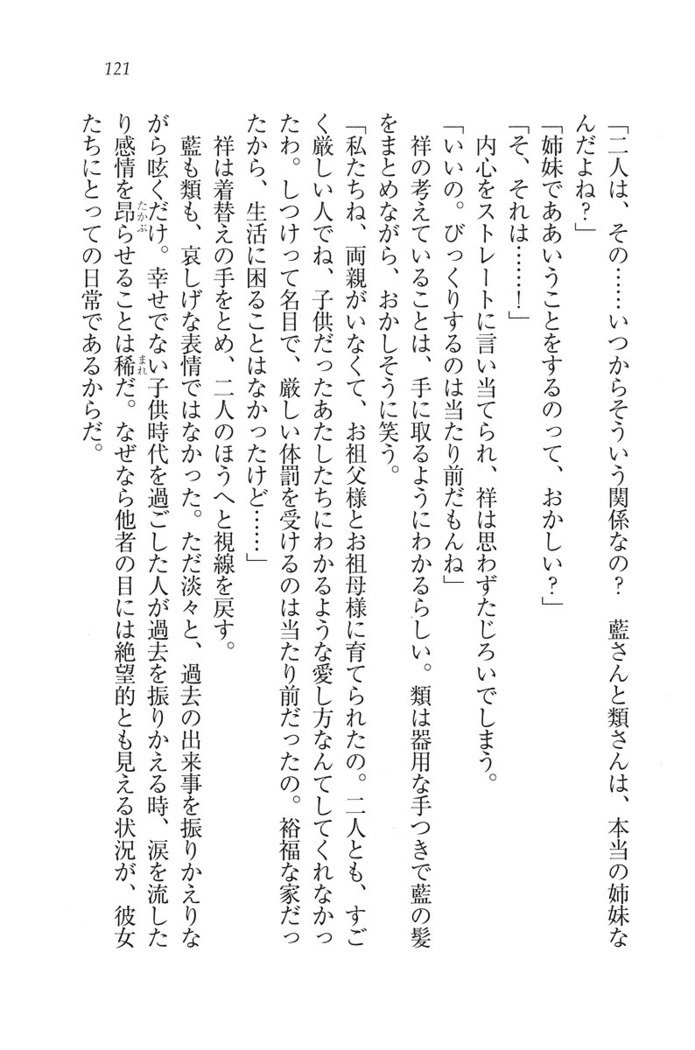 121
「二人は、その……いつからそういう関係なの？　藍さんと類さんは、本当の姉妹な
んだよね？」
「姉妹でああいうことをするのって、おかしい？」
「そ、それは……！」
内心をストレートに言い当てられ、祥は思わずたじろいでしまう。
「いいの。びっくりするのは当たり前だもんね」
祥の考えていることは、手に取るようにわかるらしい。類は器用な手つきで藍の髪
をまとめながら、おかしそうに笑う。
「私たちね、両親がいなくて、お祖父様とお祖母様に育てられたの。二人とも、すご
く厳しい人でね、子供だったあたしたちにわかるような愛し方なんてしてくれなかっ
たわ。しつけって名目で、厳しい体罰を受けるのは当たり前だったの。裕福な家だっ
たから、生活に困ることはなかったけど……」
祥は着替えの手をとめ、二人のほうへと視線を戻す。
藍も類も、哀しげな表情ではなかった。ただ淡々と、過去の出来事を振りかえりな
がら呟くだけ。幸せでない子供時代を過ごした人が過去を振りかえる時、涙を流した
り感情を昂らせることは稀だ。なぜなら他者の目には絶望的とも見える状況が、彼女
たかぶ
まれ
たちにとっての日常であるからだ。